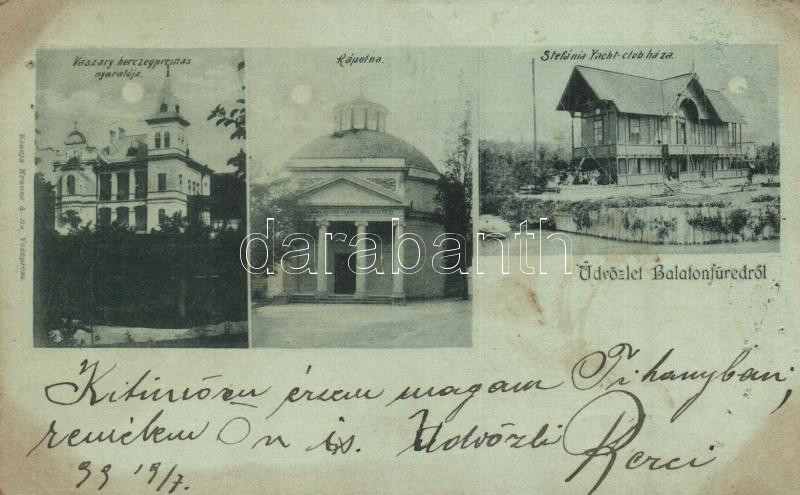 Vaszary herczegprimas
nyaralója.
Kápolna.
Stefánia Yacht-club háza.
Kiadja Krausz A. fia, Veszprém.
darabanth
Üdvözlet Balatonfüredről
Kitünően érzem magam Tihanyban,
remélem Ön is. Üdvözli
99 19/7.